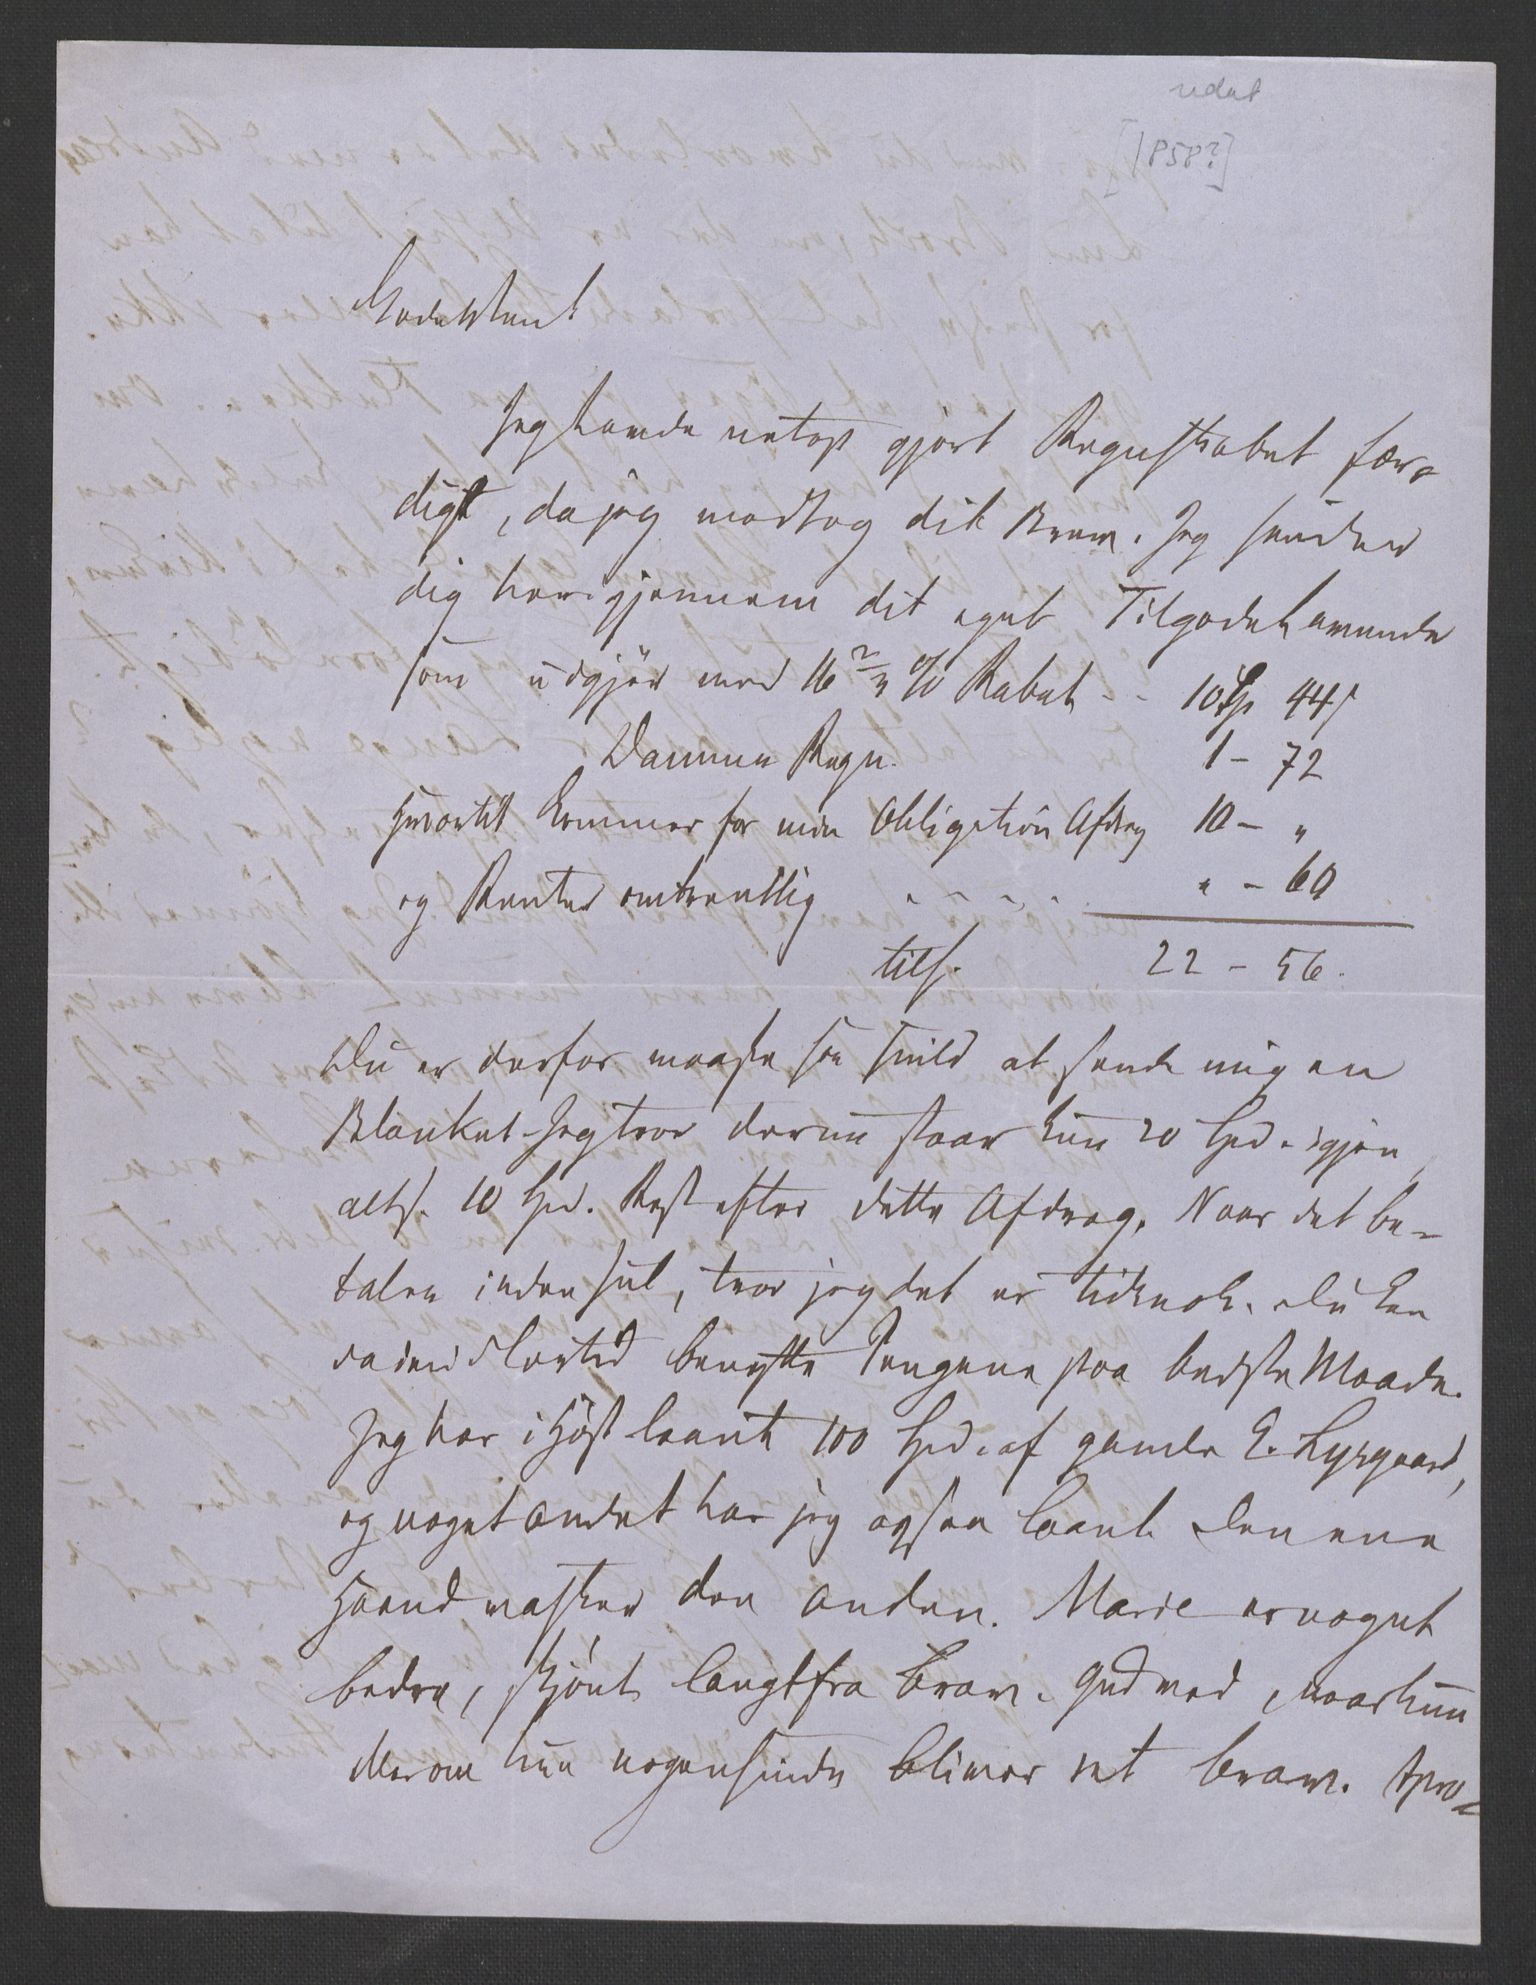 udat
[1858?]
Godeste
Jeg havde netop gjort Regnskabet fær-
digt, da jeg modtog dit Brev. Jeg sender
dig herigjennem dit eget Tilgodehavende
som udgjør med 16 2/3 % Rabat - - 10 Sp 44 s
Samme Regn. 1 - 72
Hvortil kommer for min Obligation Afdrag 10 - "
og Renter omtrentlig " - 60
tils. 22 - 56.
Du er derfor maaske saa snild at sende mig en
Blanket. Jeg tror derom staar kun 20 Spd. igjen,
alts. 10 Spd. Rest efter dette Afdrag. Naar det be-
tales inden Jul, tror jeg det er tidsnok. Du kan
da imidlertid benytte Pengene paa bedste Maade.
Jeg har i Høst laant 100 Spd. af gamle E. Lysgaard,
og noget andet har jeg ogsaa laant. Den ene
Haand vasker den anden. Marie er noget
bedre, skjønt langtfra brav. Gud ved, naar hun
eller om hun nogensinde bliver ret brav. Apro-